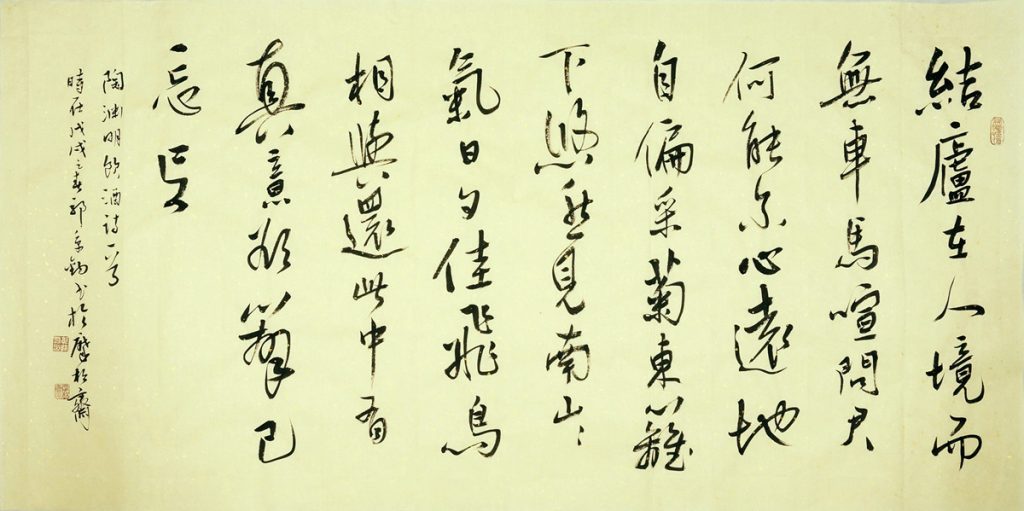 結廬在人境而
無車馬喧問君
何能尔心遠地
自偏采菊東籬
下悠然見南山々
氣日夕佳飛鳥
相與還此中有
真意欲辨已
忘言
陶淵明飲酒詩一首
時在戊戌之春郭